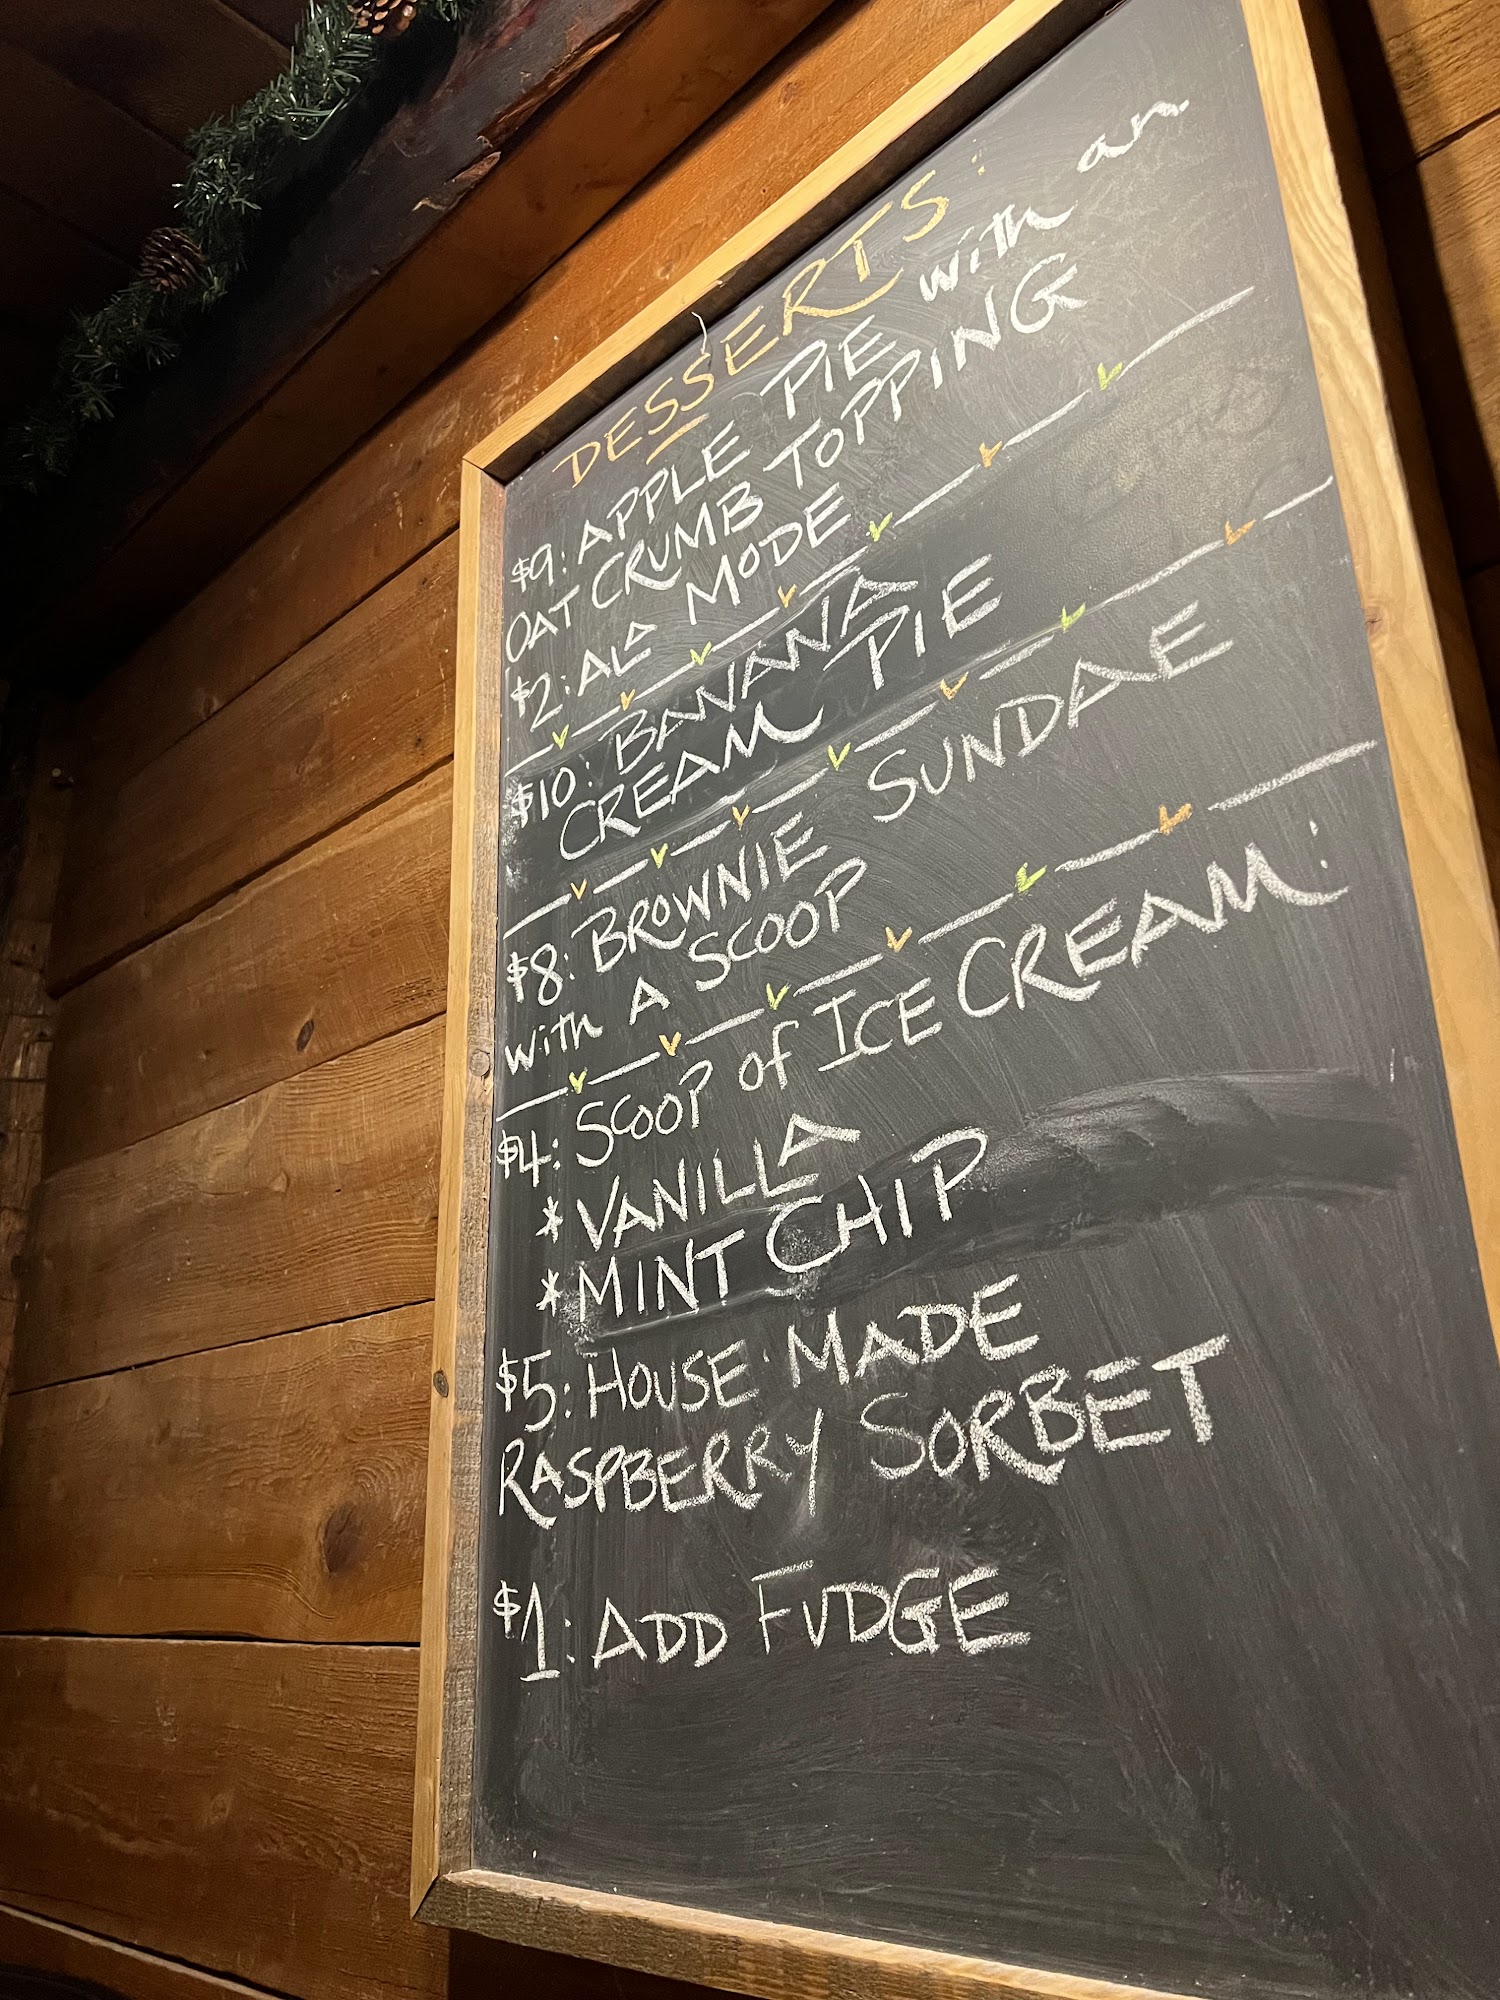 DESSERTS:
$9: APPLE PIE with an
OAT CRUMB TOPPING
$2: ALA MODE
$10: BANANA
CREAM PIE
$8: BROWNIE SUNDAE
with A SCOOP
$4: SCOOP of ICE CREAM:
* VANILLA
* MINT CHIP
$5: HOUSE MADE
RASPBERRY SORBET
$1: ADD FUDGE